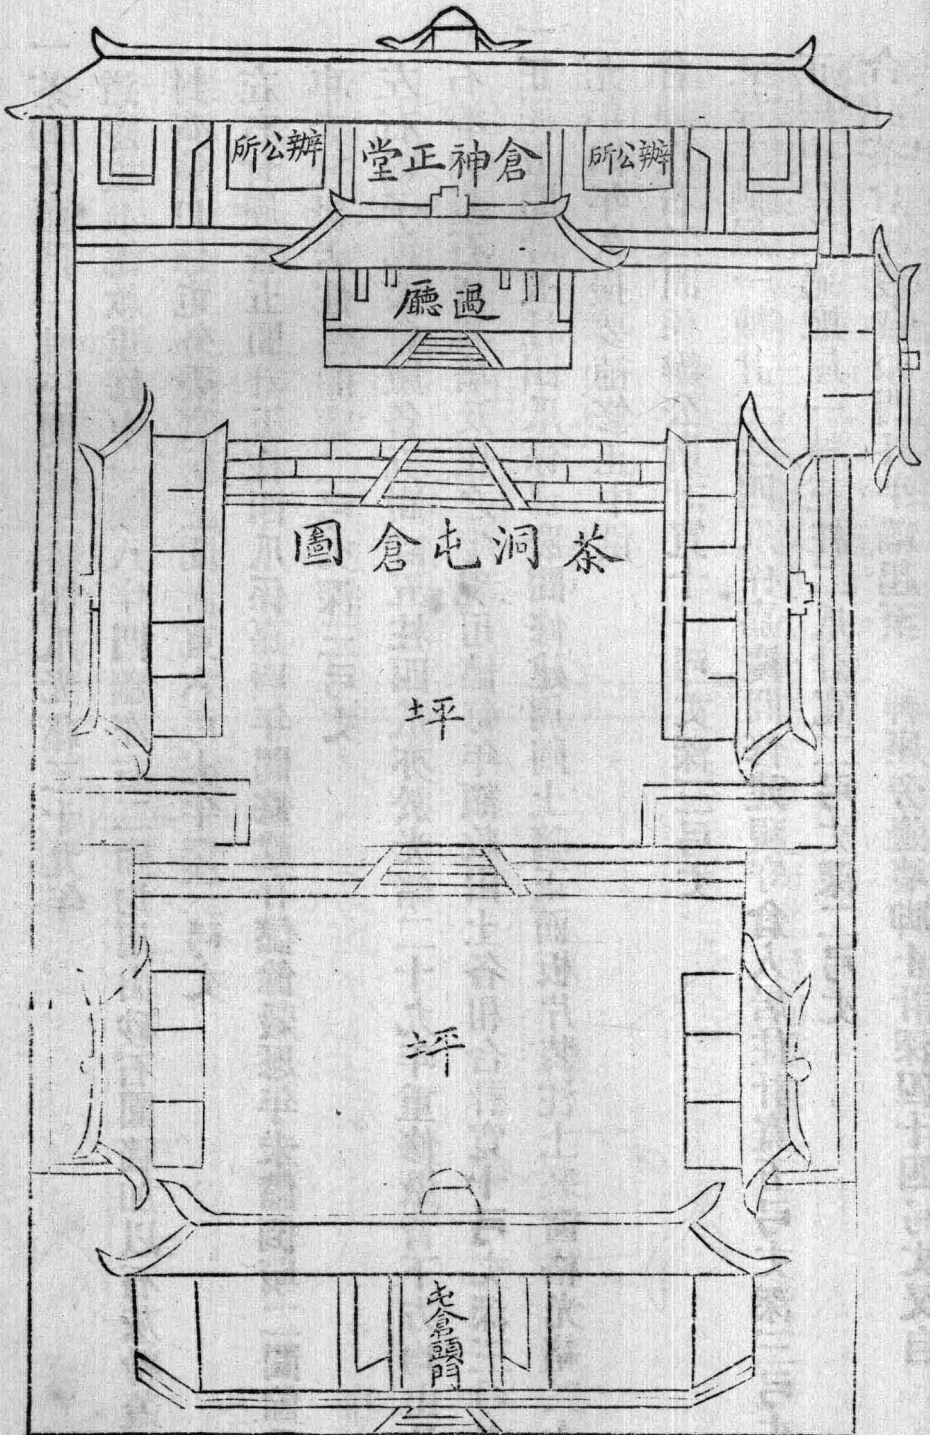 辦公所
倉神正堂
辦公所
過廳
茶洞屯倉圖
坪
坪
屯倉頭門